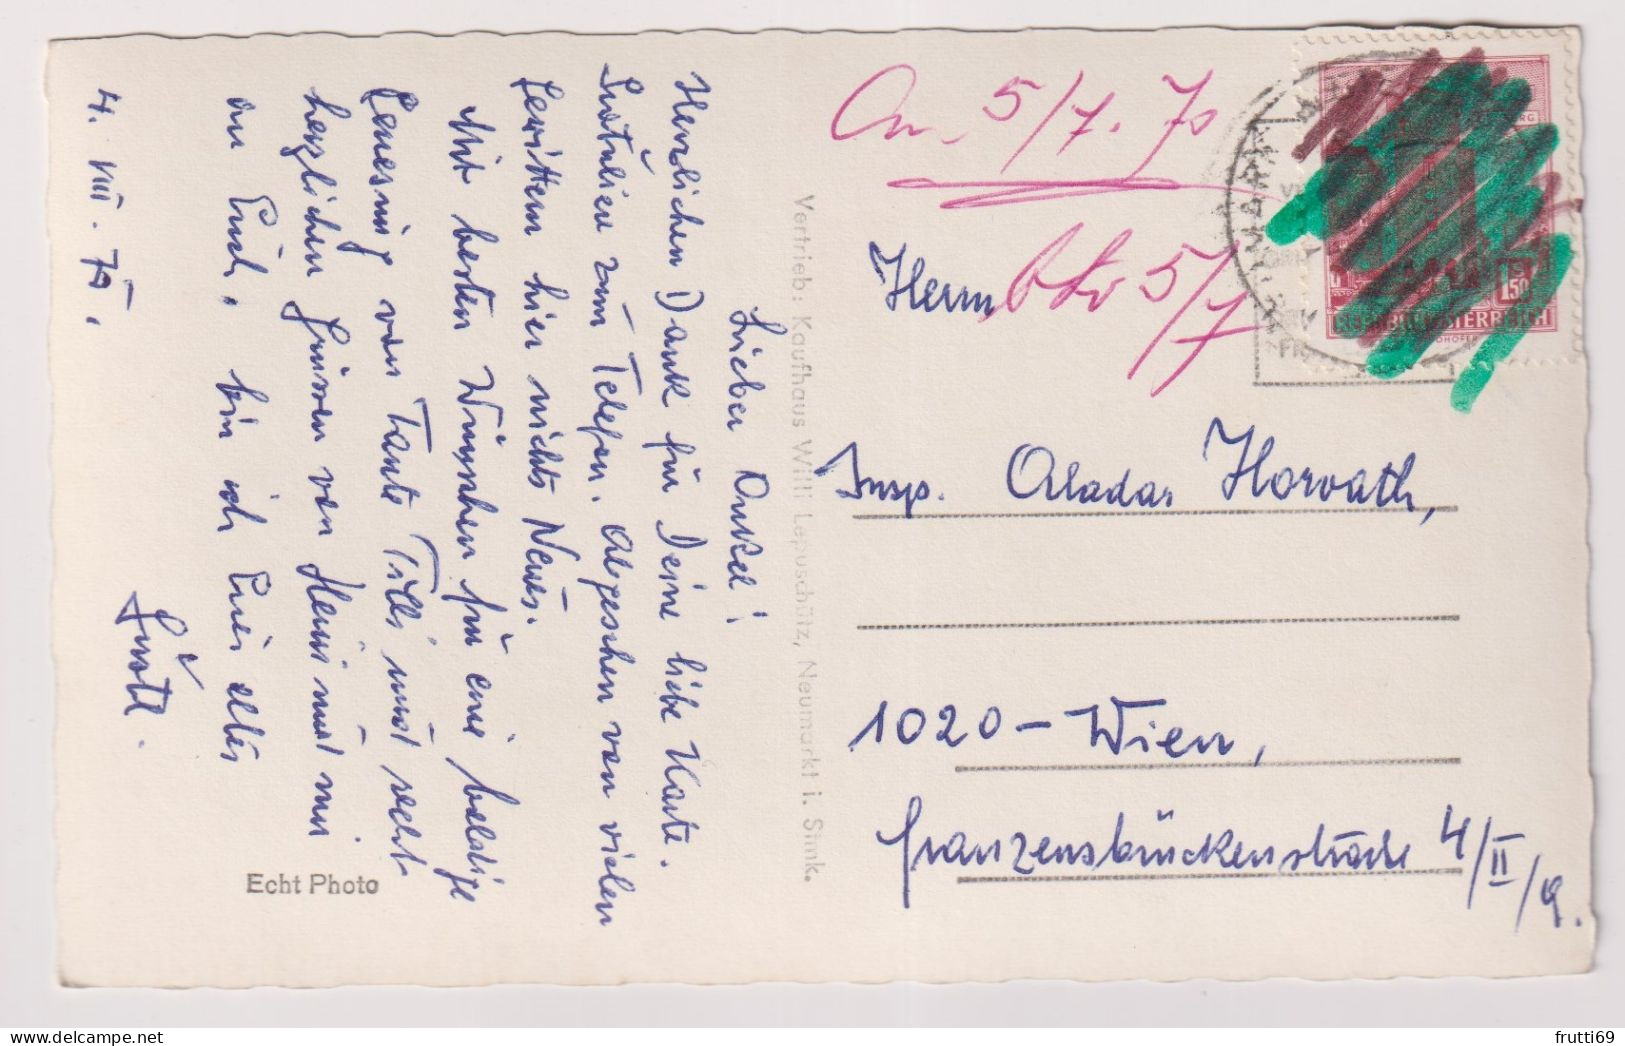 Lieber Onkel!
Herzlichen Dank für Deine liebe Karte.
zum Telefon. Abgesehen von vielen
Gewittern hier nichts Neues.
Mit besten Wünschen für eine baldige
Genesung von Tante Tilli und recht
herzlichen Grüssen von Heini und mir
an Euch, bin ich Euer altes
4. VIII. 70,
Echt Photo
Vertrieb: Kaufhaus Willi Lepuschütz, Neumarkt i. Stmk.
An. 5/7. 70
5/7
Herrn
Insp. Aladar Horvath,
1020-Wien,
Franzensbrückenstraße 4/II/9.
1.50
REPUBLIK ÖSTERREICH
frutti69